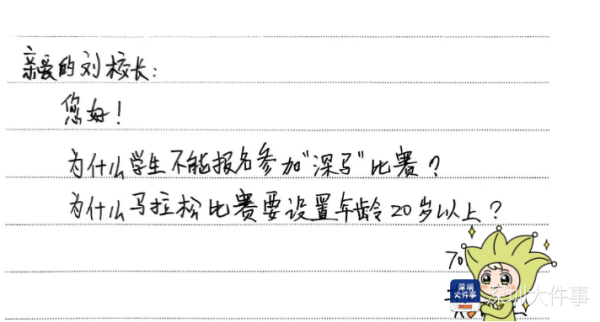 亲爱的刘校长：
您好！
为什么学生不能报名参加“深马”比赛？
为什么马拉松比赛要设置年龄20岁以上？
深圳
大件事
深圳大件事